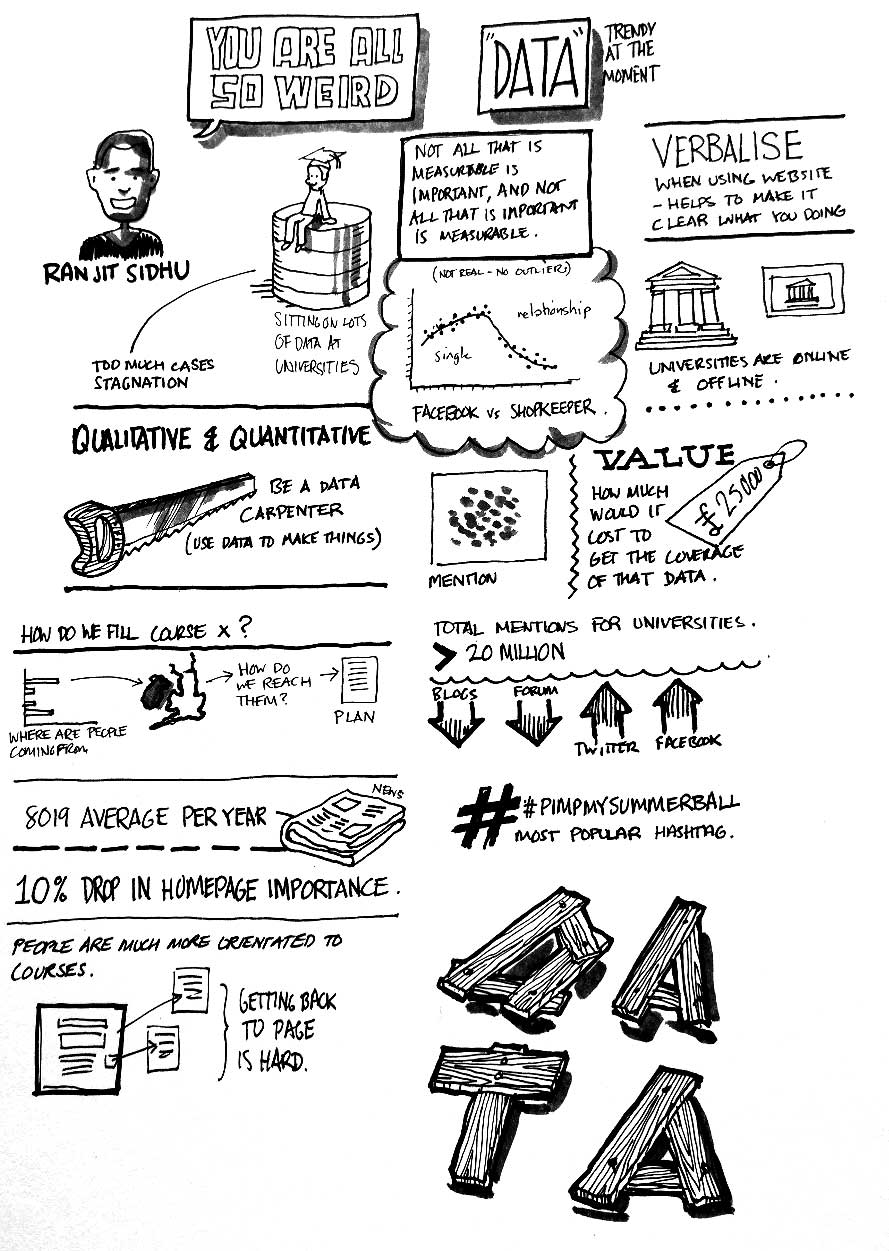 YOU ARE ALL
SO WEIRD
"DATA"
TRENDY
AT THE
MOMENT
RANJIT SIDHU
TOO MUCH CASES
STAGNATION
SITTING ON LOTS
OF DATA AT
UNIVERSITIES
NOT ALL THAT IS
MEASURABLE IS
IMPORTANT, AND NOT
ALL THAT IS IMPORTANT
IS MEASURABLE.
(NOT REAL - NO OUTLIERS)
relationship
single
FACEBOOK vs SHOPKEEPER.
VERBALISE
WHEN USING WEBSITE
- HELPS TO MAKE IT
CLEAR WHAT YOU DOING
UNIVERSITIES ARE ONLINE
& OFFLINE.
QUALITATIVE & QUANTITATIVE
BE A DATA
CARPENTER
(USE DATA TO MAKE THINGS)
MENTION
VALUE
£25000
HOW MUCH
WOULD IT
COST TO
GET THE COVERAGE
OF THAT DATA.
HOW DO WE FILL COURSE X?
WHERE ARE PEOPLE
COMING FROM
HOW DO
WE REACH
THEM?
PLAN
TOTAL MENTIONS FOR UNIVERSITIES.
> 20 MILLION
BLOGS
FORUM
TWITTER
FACEBOOK
8019 AVERAGE PER YEAR
NEWS
10% DROP IN HOMEPAGE IMPORTANCE.
# #PIMPMYSUMMERBALL
MOST POPULAR HASHTAG.
PEOPLE ARE MUCH MORE ORIENTATED TO
COURSES.
GETTING BACK
TO PAGE
IS HARD.
DA
TA